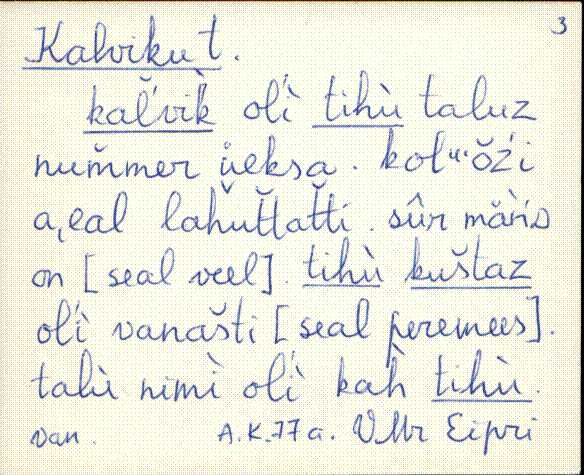 3
Kalvikut.
kal̆'vik̀ oĺì tihù taluz
num̆mer üeksa. kol"ŏź'i
a,eal lahŭt̆tat̆ti. sûr mäǹis
on [seal veel]. tihù kuštaz
oĺì vanašti [seal peremees].
talù nimì oĺì kah̀ tihù.
van. A.K. 77 a. VMr Eipri